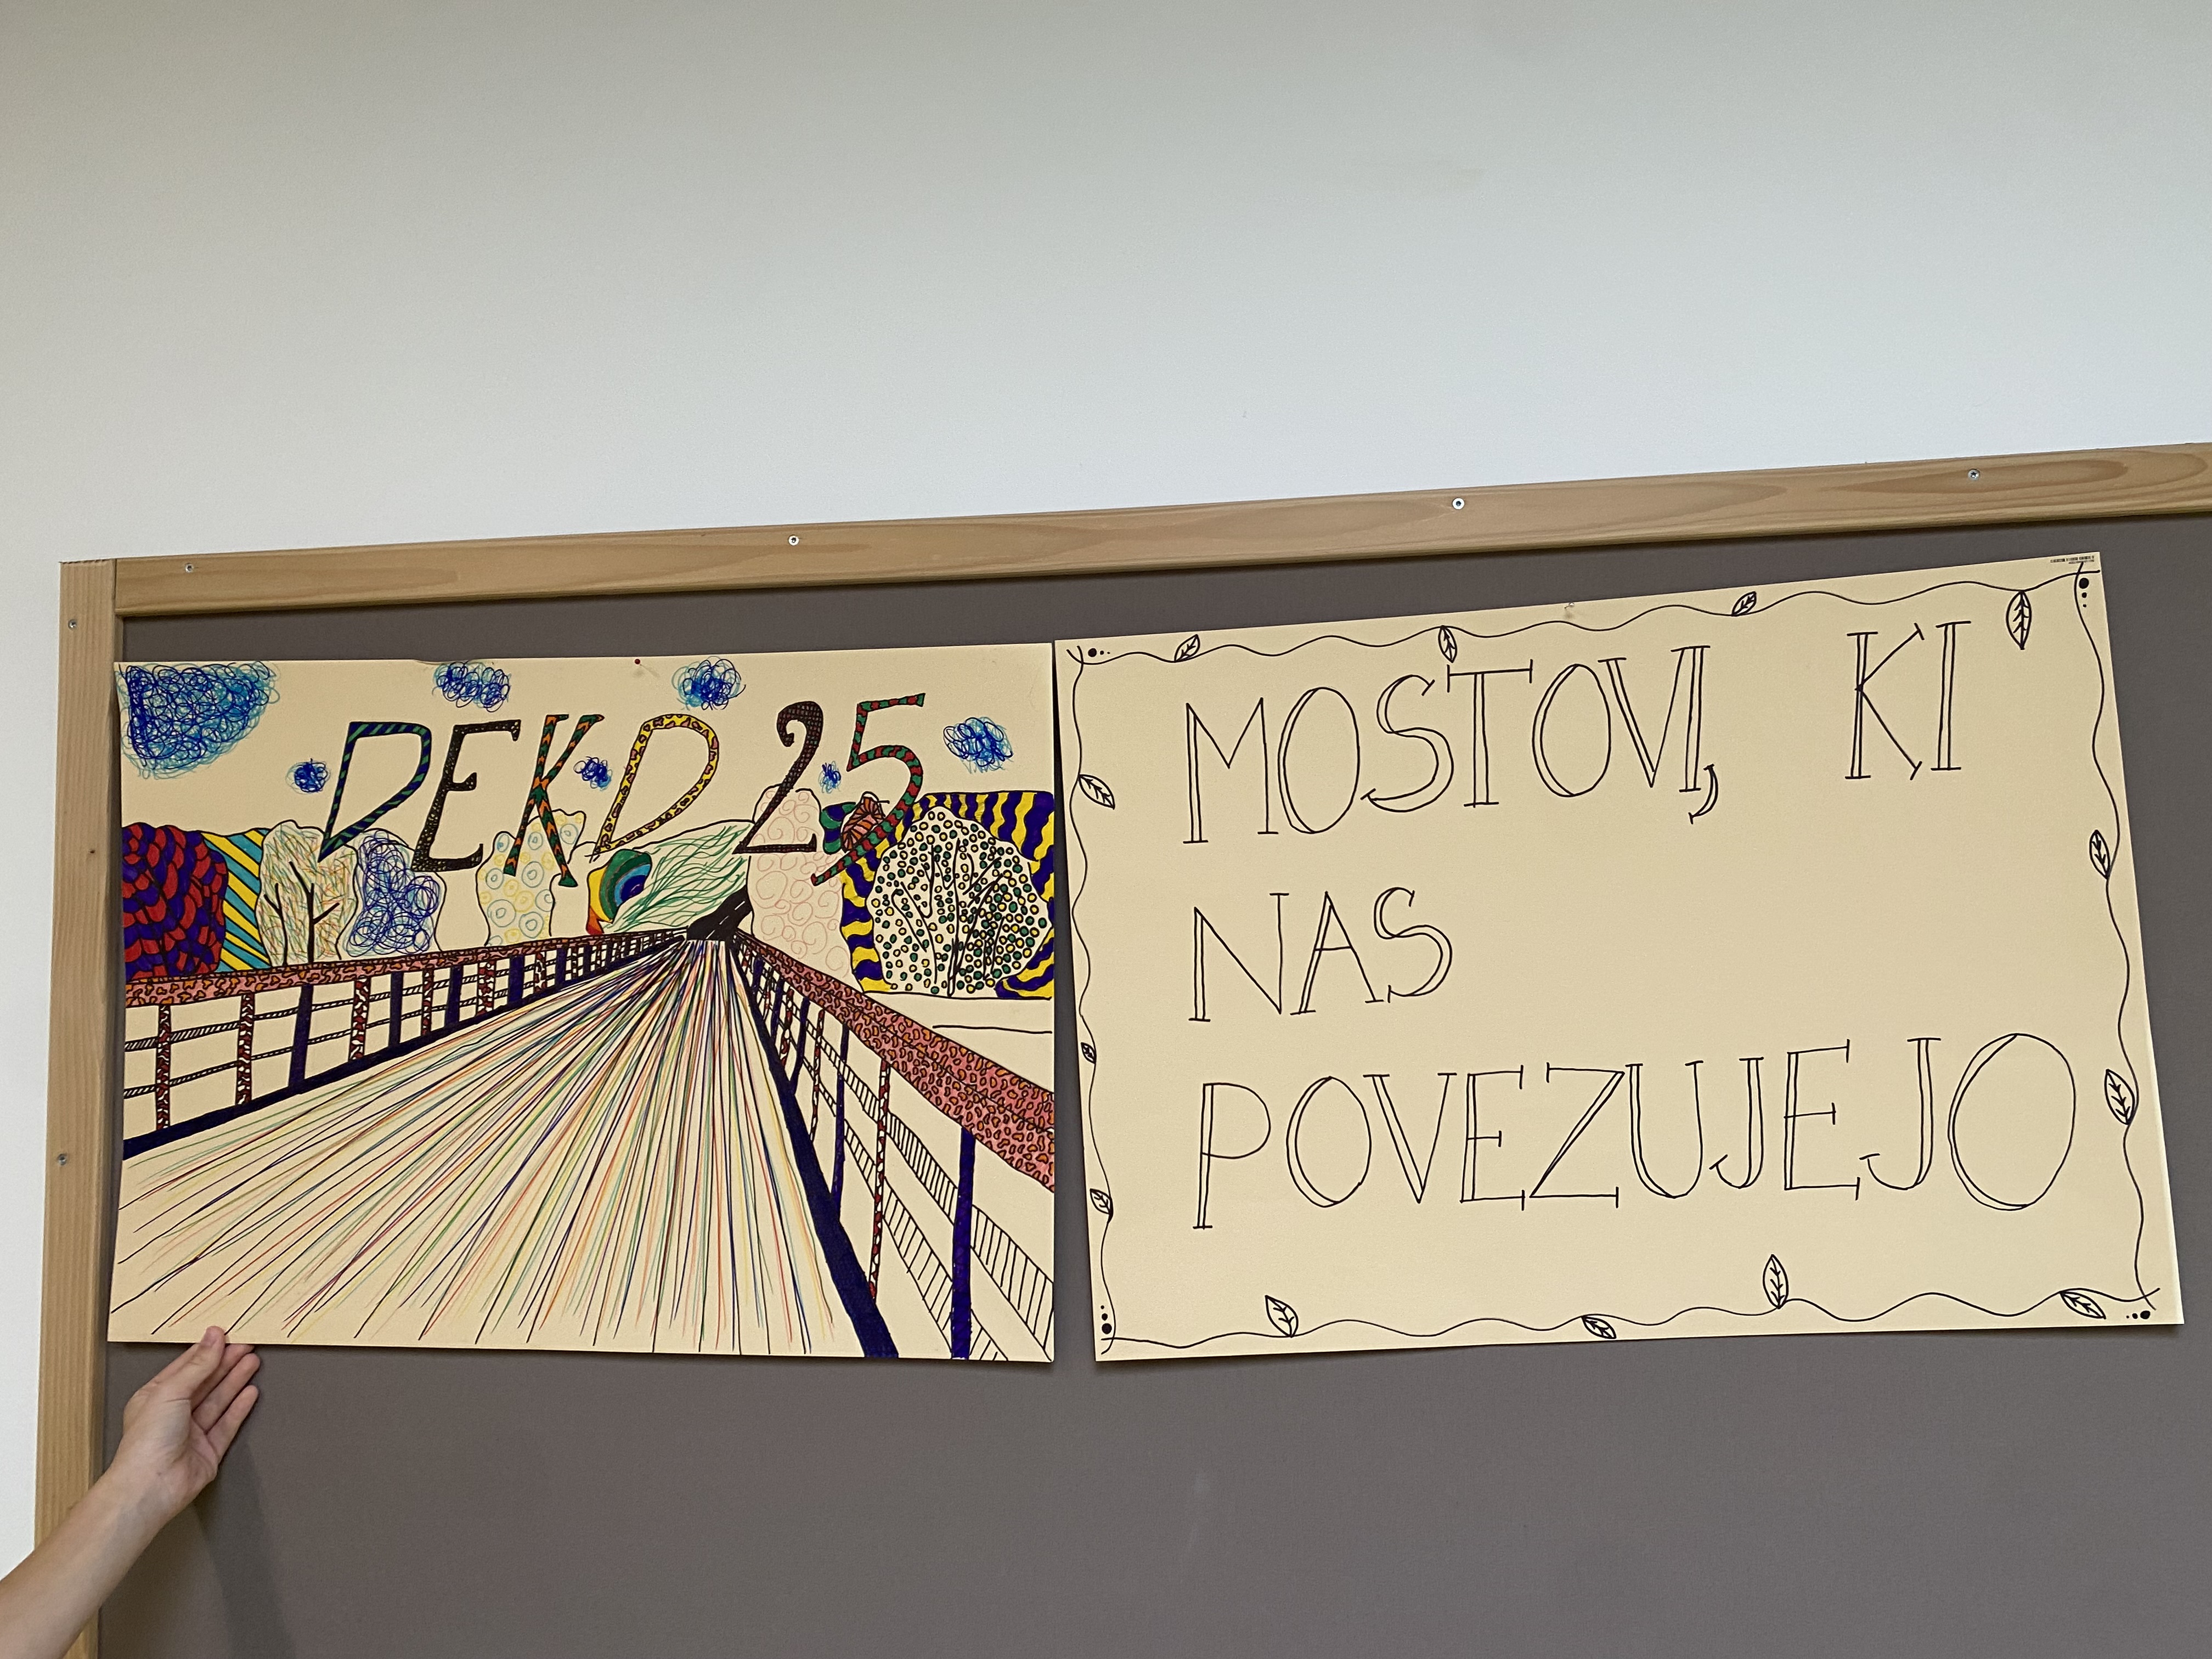 DEKD 25
MOSTOVI, KI
NAS
POVEZUJEJO